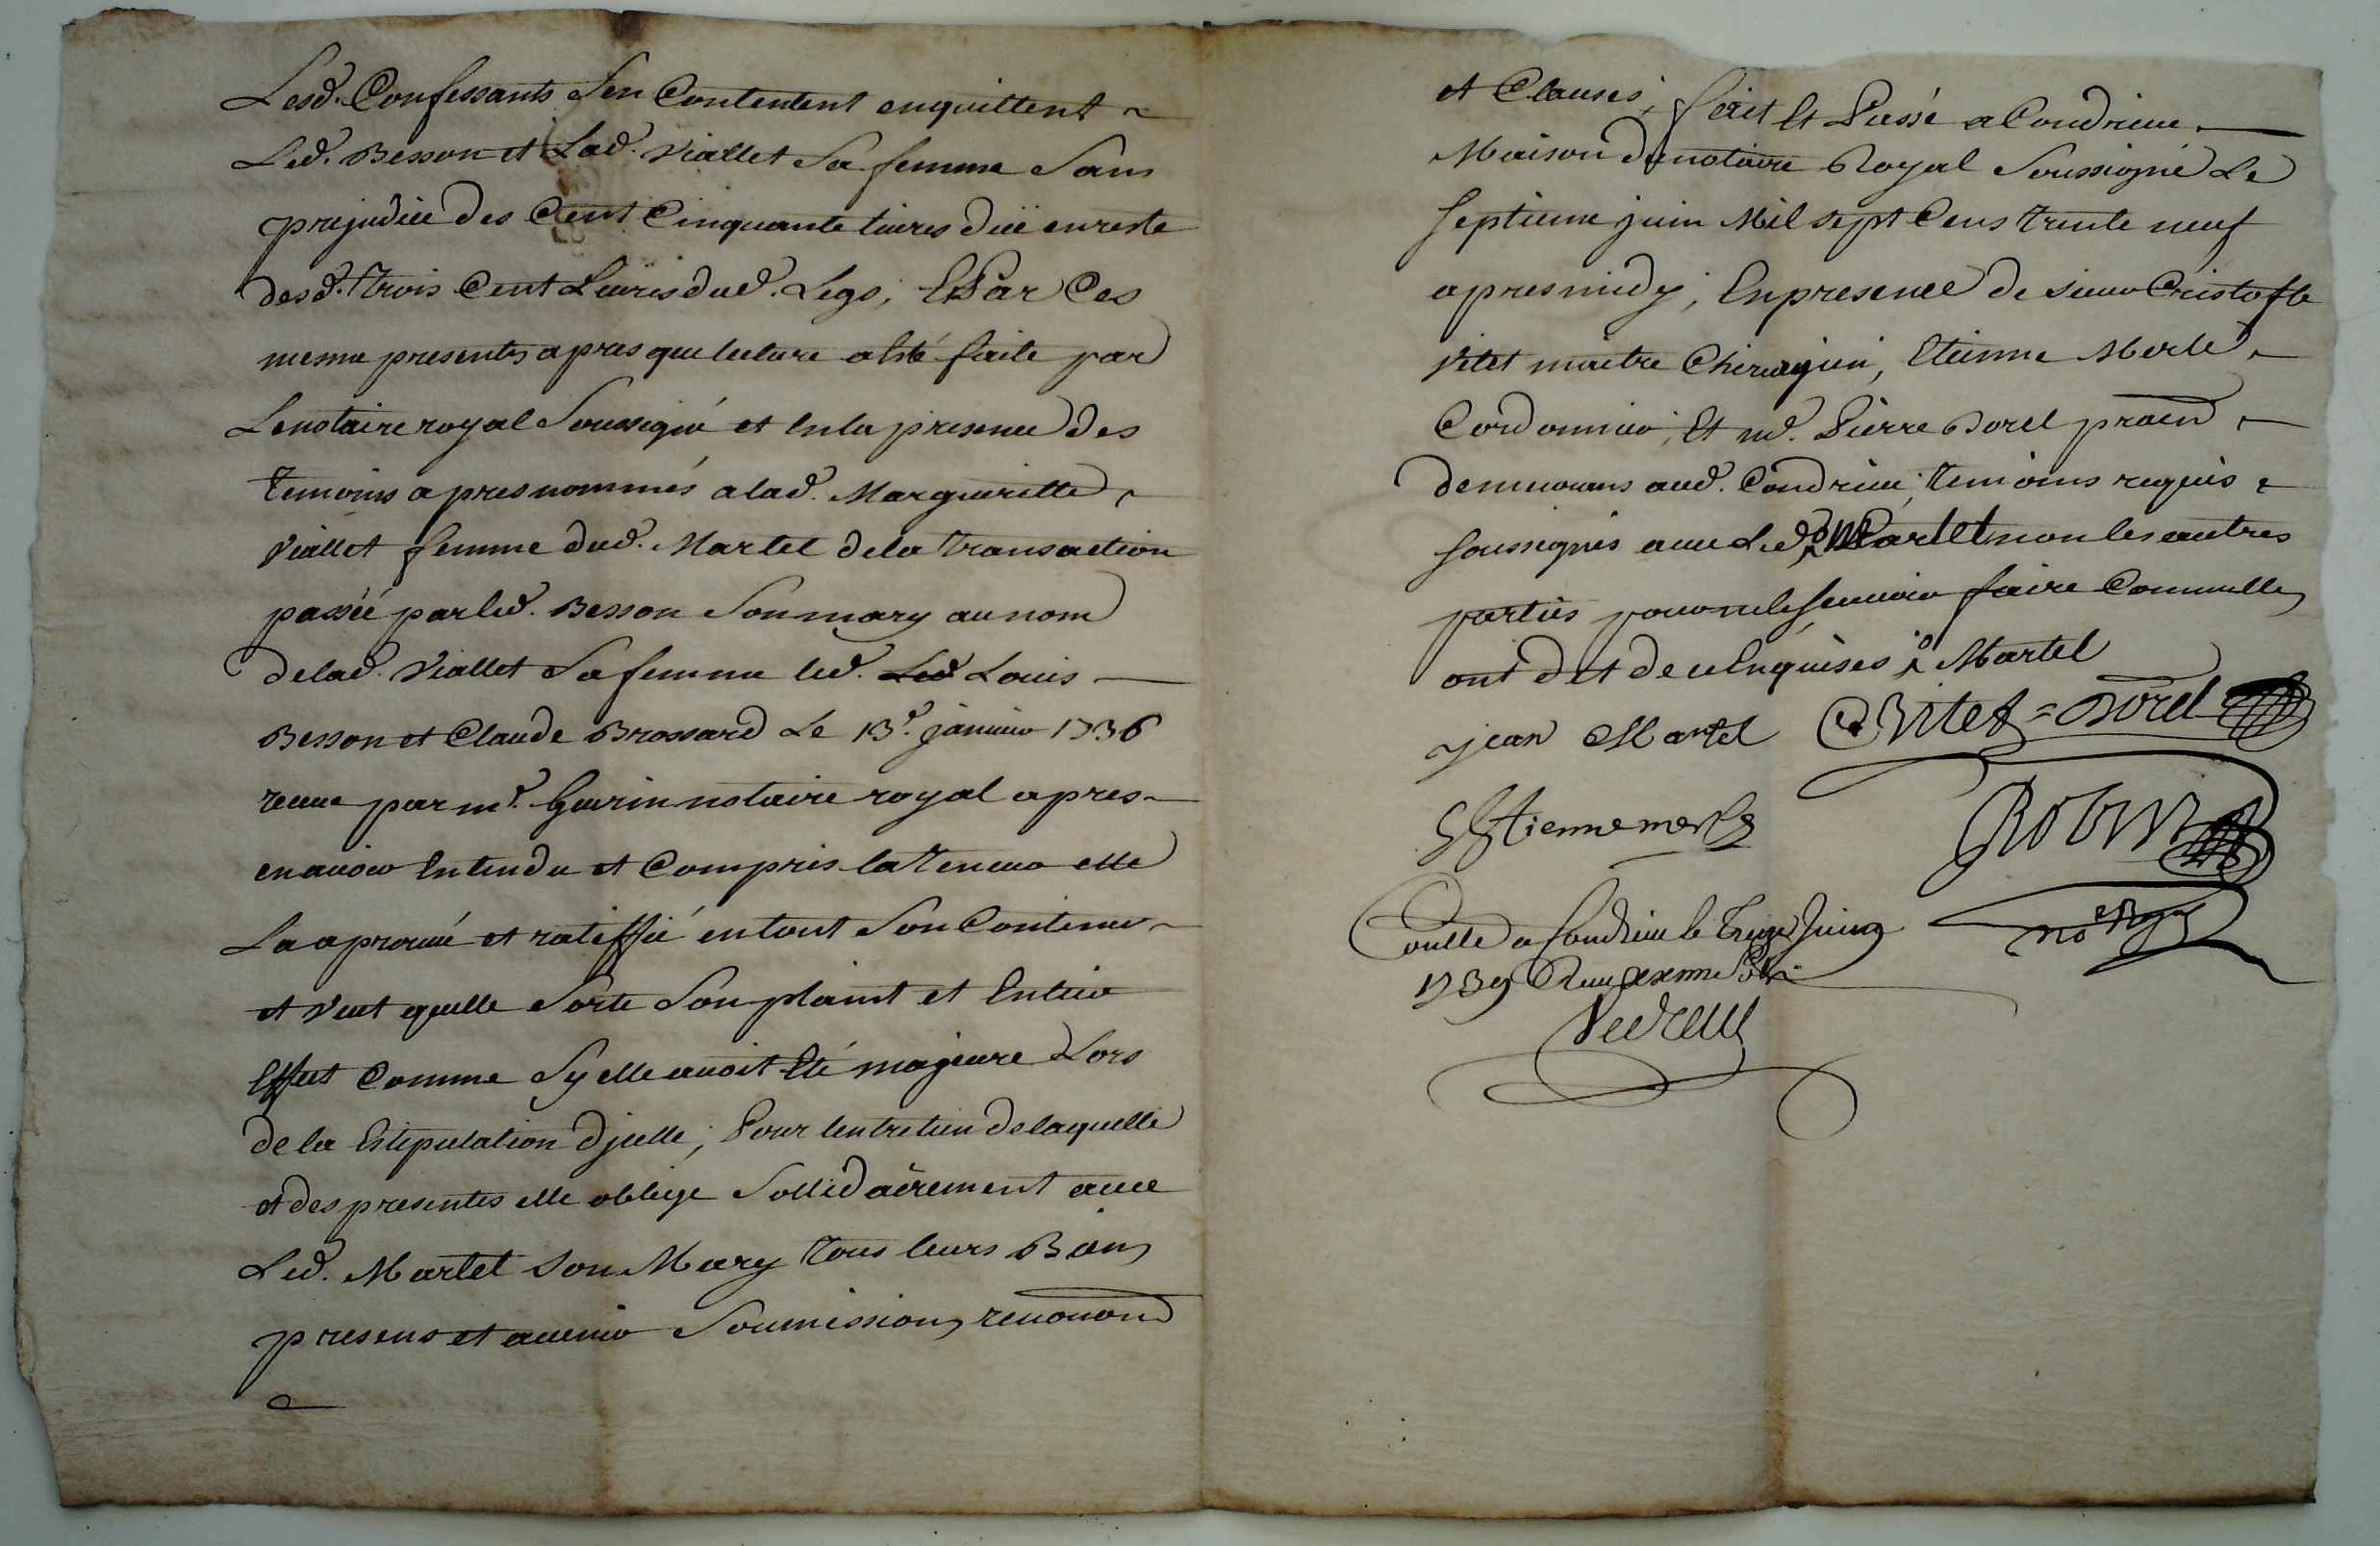 Lesd. Confessants s'en Contentent en quittent
Led. Besson et Lad. Viallet Sa femme Sans
prejudice des Cent Cinquante livres düe en reste
desd. trois Cent Livres dud. Legs; Et Par Ces
mesme presentes apres que lecture a Eté faite par
Le notaire royal Soussigné et En la presence des
temoins apres nommés a lad. Margueritte
Viallet femme dud. Martel de la transaction
passée par led. Besson Son mary au nom
de lad. Viallet Sa femme led. Led Louis
Besson et Claude Brossard Le 13e. janvier 1736
receue par me. Guerin notaire royal apres
en avoir Entendu et Compris la Teneur elle
La aprouvé et ratiffié en tout Son Contenu
et veut quelle Sorte Son plaint et Entier
Effect Comme Sy elle avoit Eté majeure Lors
de la Estipulation d'jcelle; Pour lentretien de laquelle
et des presentes elle oblige Sollidairement avec
Led. Martel Son Mary tous leurs Biens
presens et avenir Soumissions renonon
et Clauses, fait Et Passé a Condrieu
Maison du notaire Royal Soussigné Le
Septieme juin Mil Sept Cens trente neuf
apres midy, En presence de sieur Cristofle
Vitet maitre Chirurgien, Etienne Merle
Cordonnier, Et me. Pierre Dorel praën
demeurans aud. Condrieu, temoins requis
Soussignés avec Led. Martel non les autres
parties pour ne le Scavoir faire Comme elles
ont dit de ce Enquises Martel
jean Martel C Vitet = Dorel
Estienne merle
Robin
no Ry
Conllé a Condrieu le Treize Juin
1739 Reçu